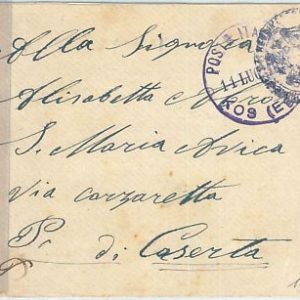 Alla Signora
Alisabetta
S. Maria Avica
Via Cazzaretta
Pr di Caserta
POSTA ITA
11 LUG
ROS (E